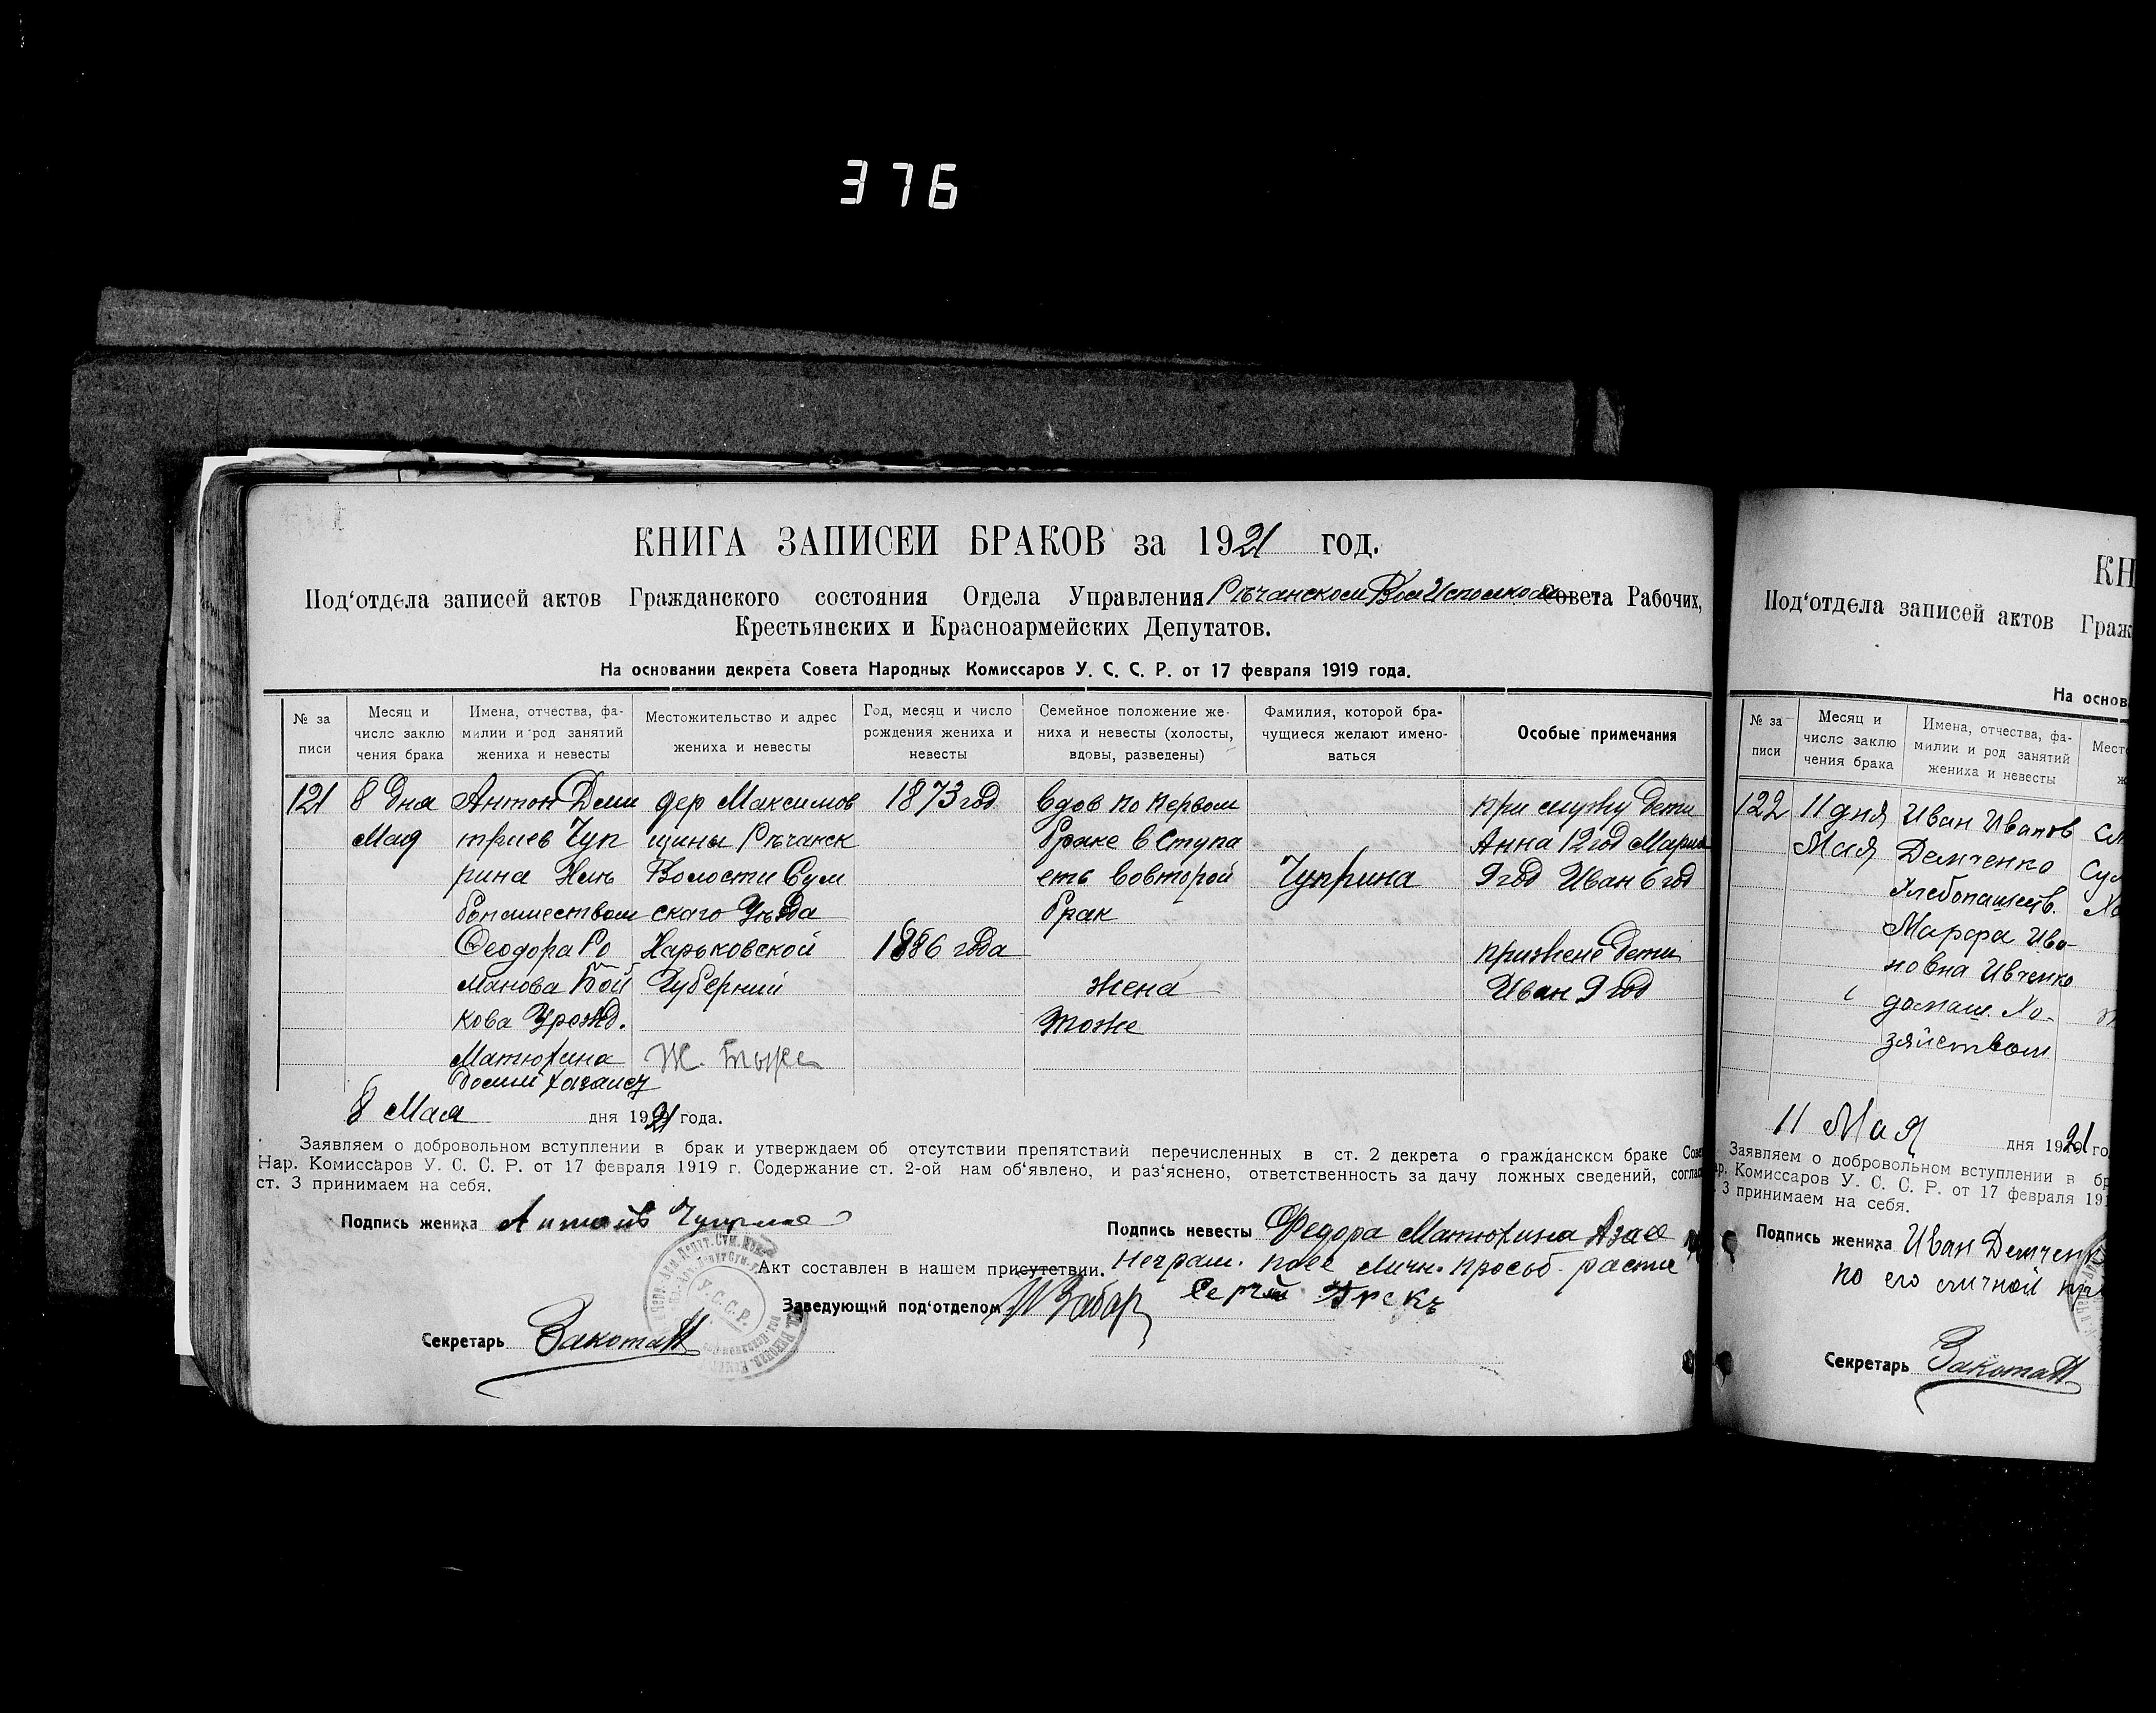 376
КНИГА ЗАПИСЕЙ БРАКОВ за 1921 год.
Под‘отдела записей актов Гражданского состояния Отдела Управления Рѣчанском ВолИсполком Совета Рабочих,
Крестьянских и Красноармейских Депутатов.
На основании декрета Совета Народных Комиссаров У. С. С. Р. от 17 февраля 1919 года.
№ за
писи
Месяц и
число заклю
чения брака
Имена, отчества, фа-
милии и род занятий
жениха и невесты
Местожительство и адрес
жениха и невесты
Год, месяц и число
рождения жениха и
невесты
Семейное положение же-
ниха и невесты (холосты,
вдовы, разведены)
Фамилия, которой бра-
чущиеся желают имено-
ваться
Особые примечания
121
8 дня
Мая
Антон Дми
триев Чуп
рина Хлѣ
бопашеством
Феодора Ро
манова Бой
кова Урожд.
Матюхина
дер Максимов
щины Рѣчанск
Волости Сум
скаго Уѣзда
Харьковской
Губернии
1873 год
1886 года
вдов по первом
браке в Ступа
еть вовторой
брак
жена
тоже
Чуприна
при мужу дети
Анна 12 год Мария
9 год Иван 6 год
при жене дети
Иван 9 год
8 Мая дня 1921 года.
Заявляем о добровольном вступлении в брак и утверждаем об отсутствии препятствий перечисленных в ст. 2 декрета о гражданском браке Сове
Нар. Комиссаров У. С. С. Р. от 17 февраля 1919 г. Содержание ст. 2-ой нам об‘явлено, и раз‘яснено, ответственность за дачу ложных сведений, соглас
ст. 3 принимаем на себя.
Подпись жениха Антонъ Чуприна
Подпись невесты Федора Матюхина Азаее
Акт составлен в нашем присутствии. Неграм. поее личн. просьб. расти
Заведующий под‘отделом Сергѣй Грекъ
Секретарь
У.С.С.Р.
КН
Под‘отдела записей актов Граж
На основ
№ за
писи
Месяц и
число заклю
чения брака
Имена, отчества, фа-
милии и род занятий
жениха и невесты
Мест
ж
122
11 дня
Мая
Иван Иванов
Демченко
Хлебопашеств.
Марфа Ива-
новна Ивченко
домаш. Хо-
зяйством
11 Мая дня 1921 го
Заявляем о добровольном вступлении в бр
ар. Комиссаров У. С. С. Р. от 17 февраля 191
. 3 принимаем на себя.
Подпись жениха Иван Демченк
по его личной пр
Секретарь